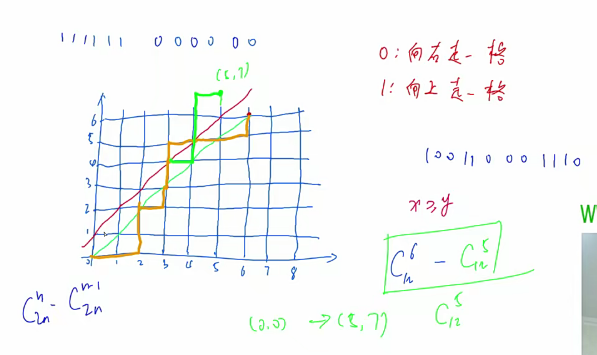 1 1 1 1 1 1 0 0 0 0 0 0
(5,7)
0:向右走一格
1:向上走一格
6
5
4
3
2
1
0 1 2 3 4 5 6 7 8
1 0 0 1 1 0 0 0 1 1 1 0
x≥y
C_{12}^{6} - C_{12}^{5}
C_{2n}^{n} - C_{2n}^{n-1}
(0,0) → (5,7) C_{12}^{5}
W